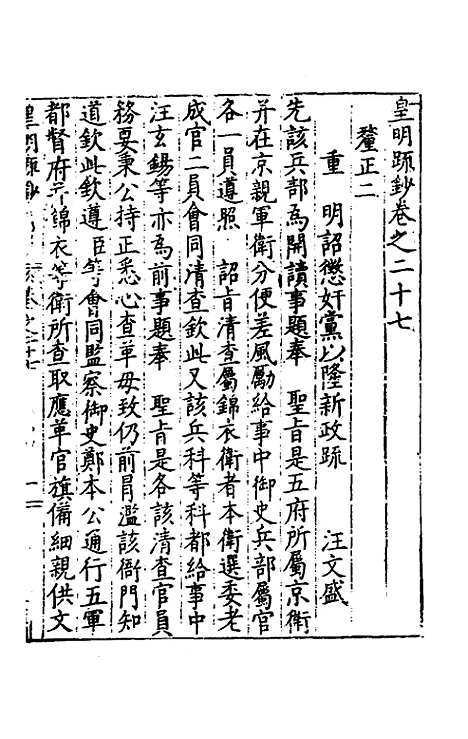 皇明疏鈔卷之二十七
釐正二
重 明詔懲奸黨以隆新政疏 汪文盛
先該兵部為開讀事題奉 聖旨是五府所屬京衛
并在京親軍衛分便差風勵給事中御史兵部屬官
各一員遵照 詔旨清查屬錦衣衛者本衛選委老
成官二員會同清查欽此又該兵科等科都給事中
汪玄錫等亦為前事題奉 聖旨是各該清查官員
務要秉公持正悉心查革毋致仍前冐濫該衙門知
道欽此欽遵臣等會同監察御史鄭本公通行五軍
都督府并錦衣等衛所查取應革官旗備細親供文